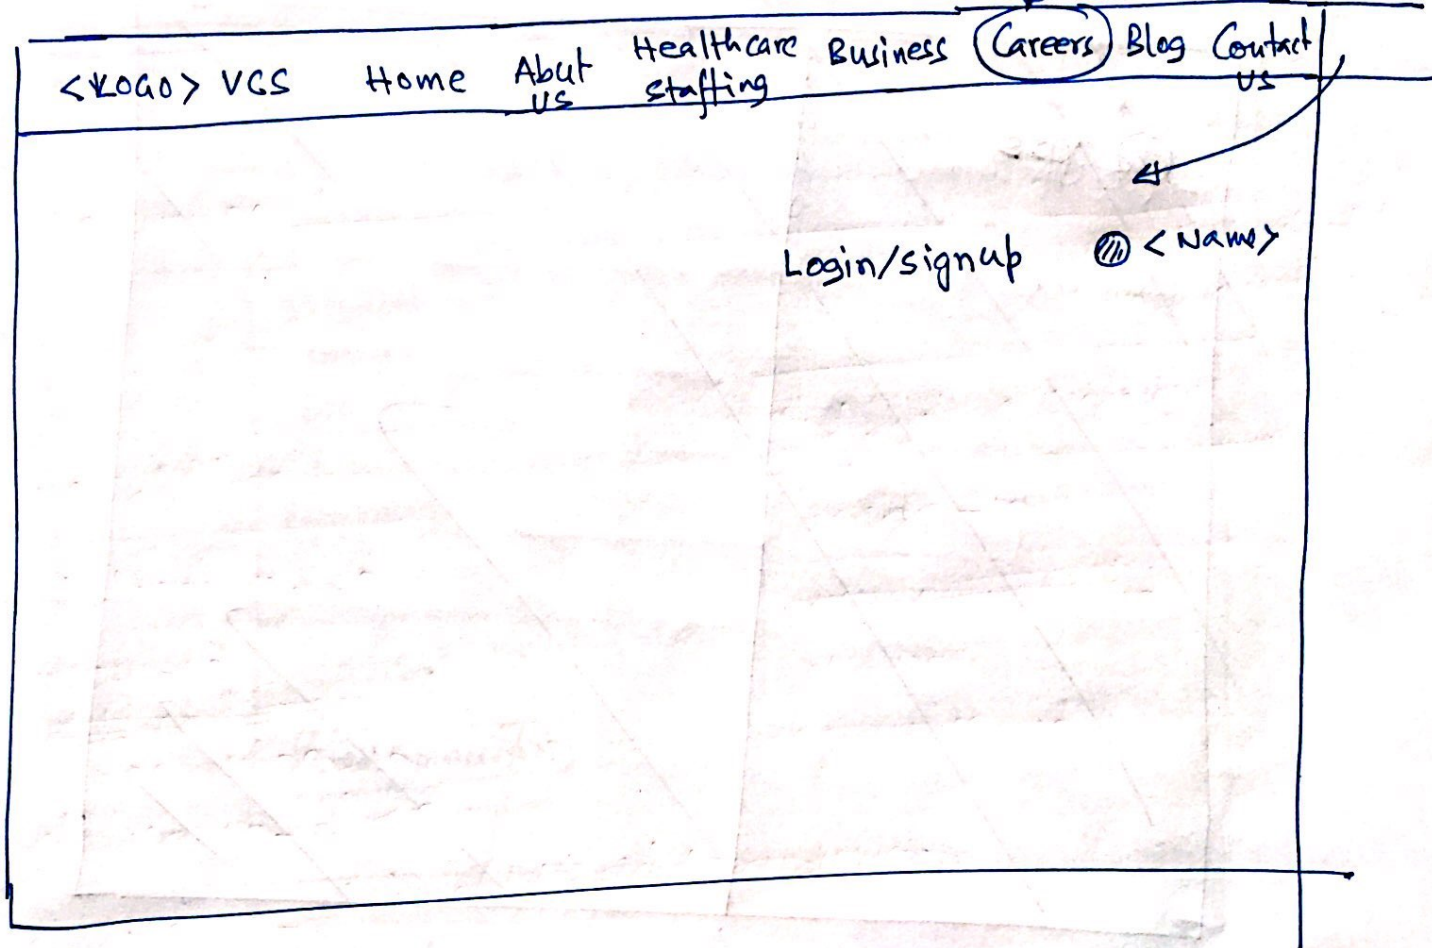 <LOGO> VGS Home About us Healthcare staffing Business Careers Blog Contact us
Login/signup <Name>